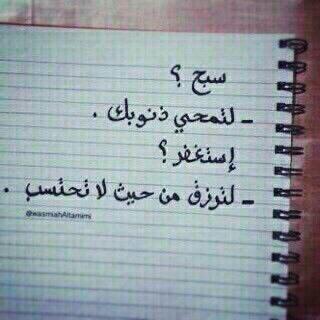 سبح ؟
ـ لتمحي ذنوبك .
إستغفر ؟
ـ لترزق من حيث لا تحتسب .
@wasmiahAltamimi